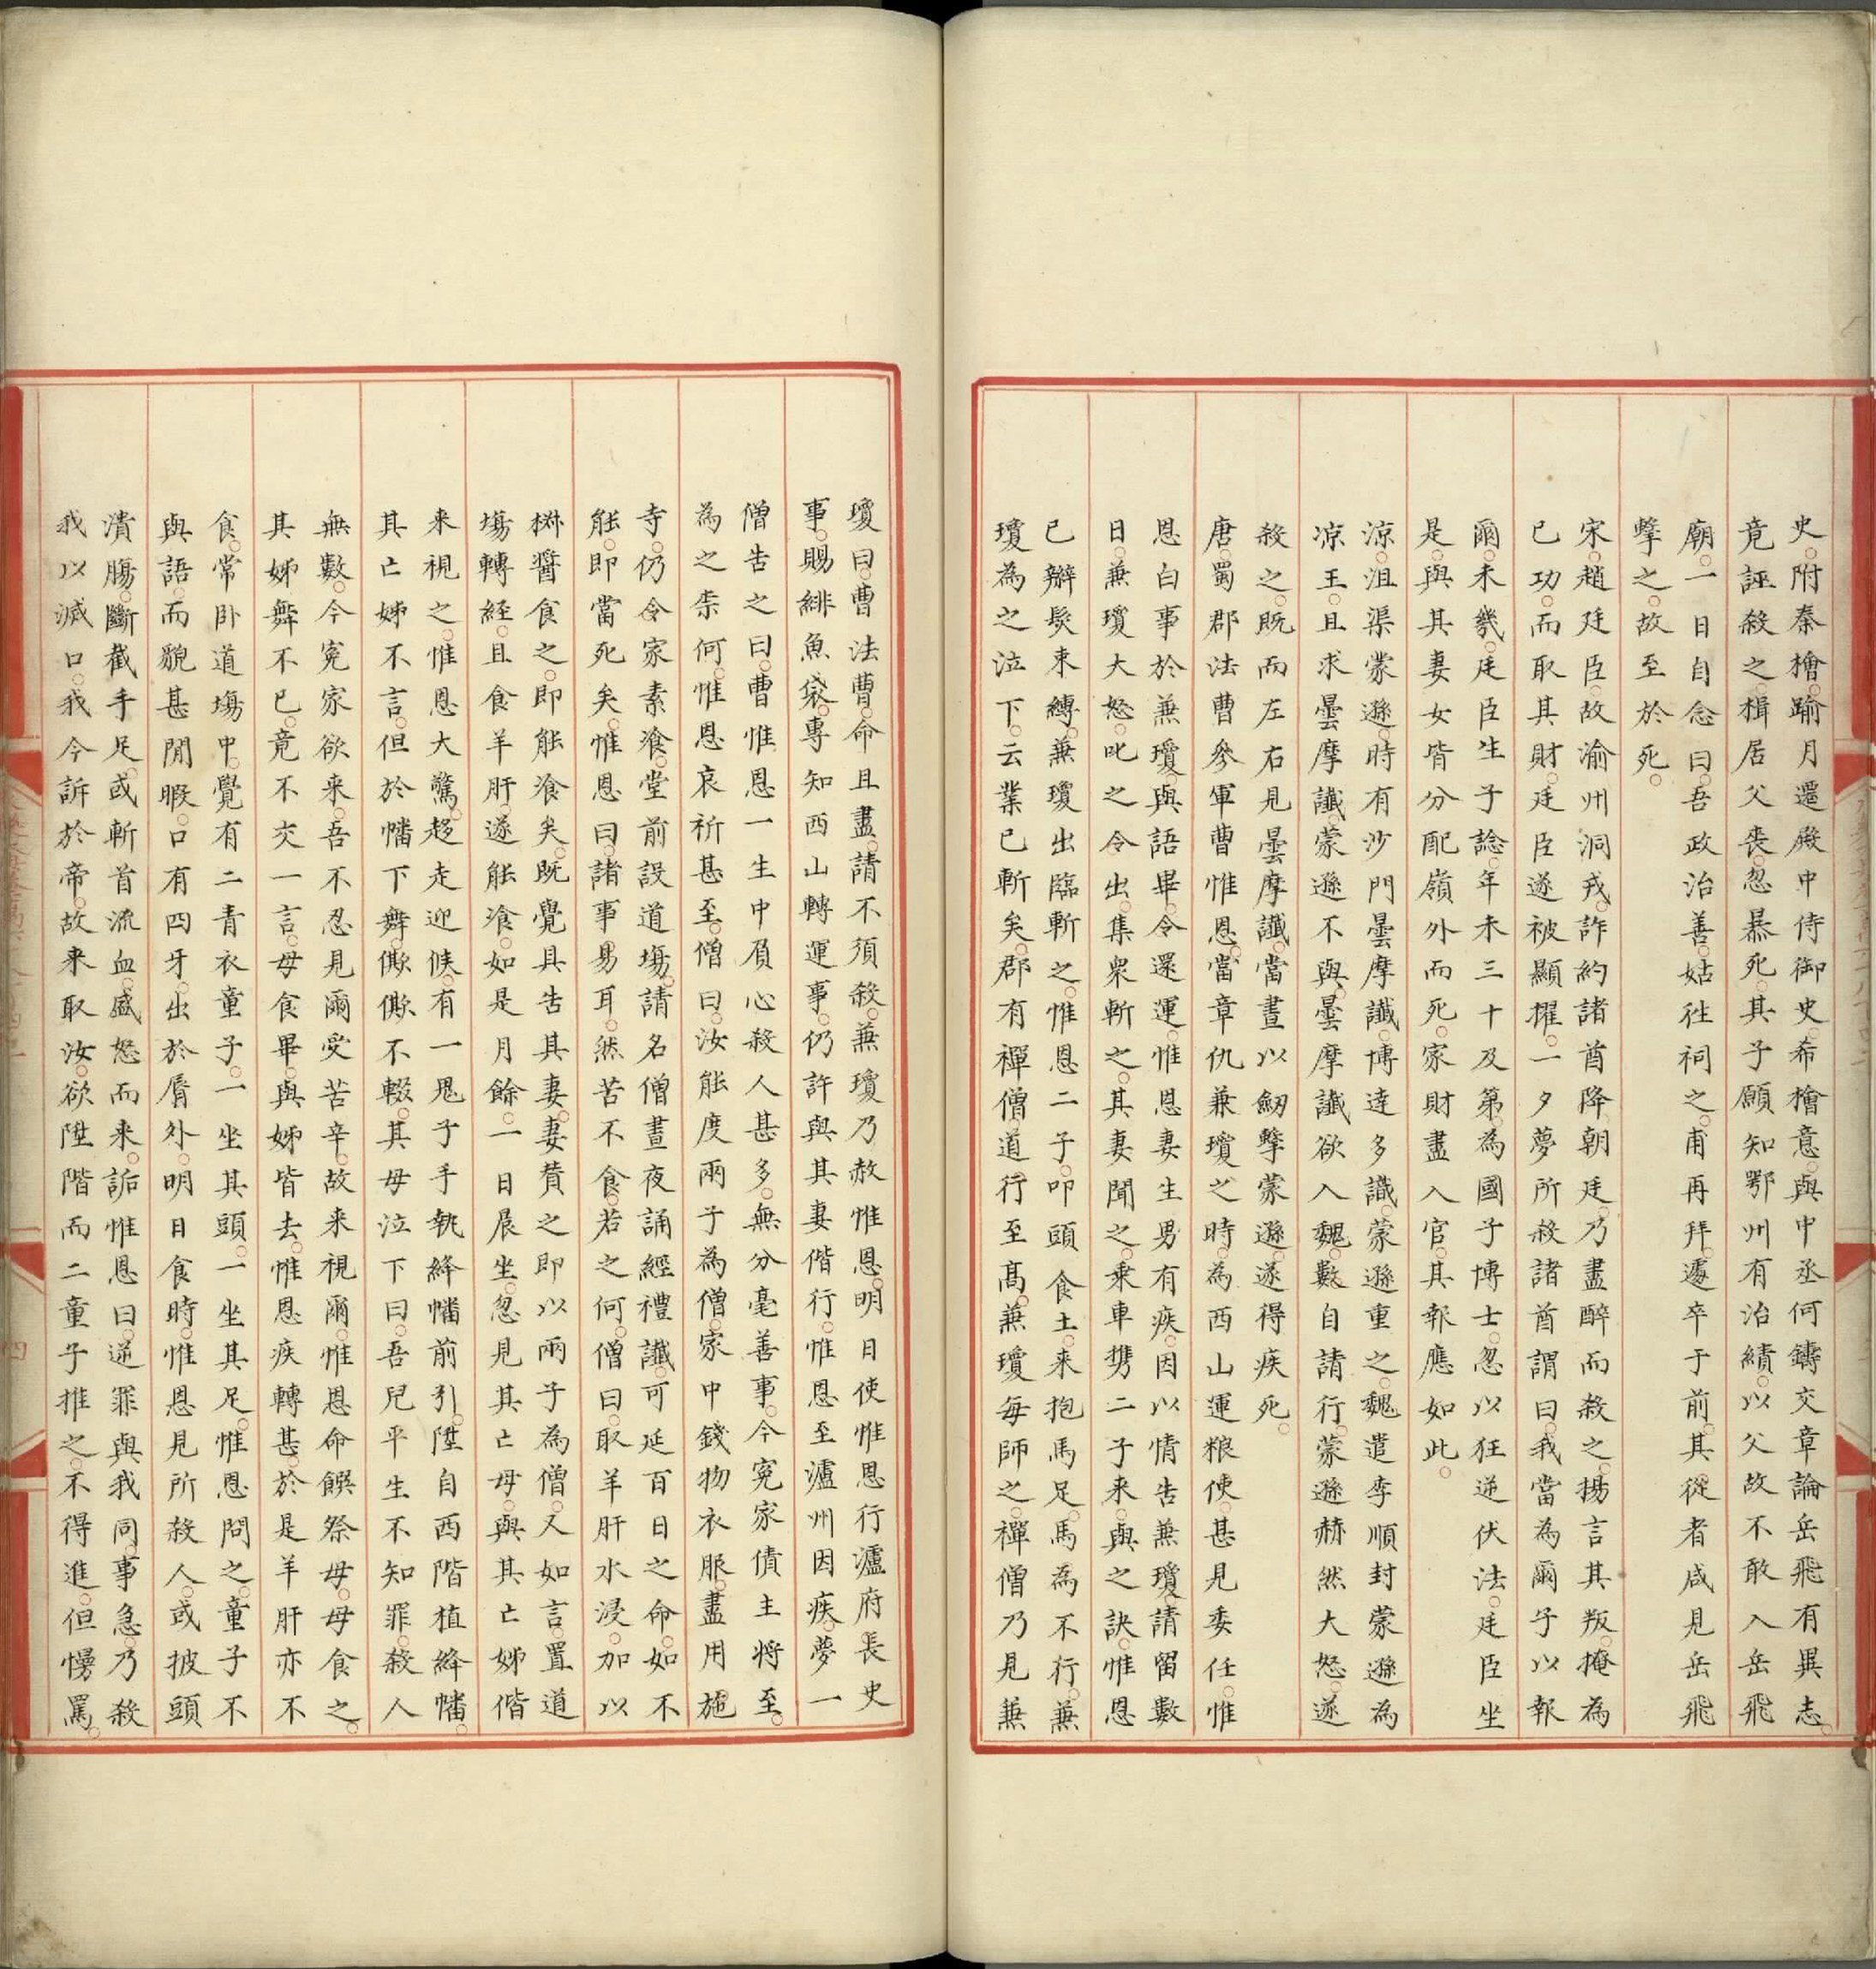 史附秦檜踰月還殿中侍御史希檜意與中丞何鑄交章論岳飛有異志
竟誣殺之楫居父喪忽暴死其子願知鄂州有治績以父故不敢入岳飛
廟一日自念曰吾政治善姑往祠之甫再拜遽卒于前其從者咸見岳飛
擊之故至於死
宋趙廷臣故渝州洞戎詐約諸酋降朝廷乃盡醉而殺之揚言其叛掩為
己功而取其財廷臣遂被顯擢一夕夢所殺諸酋謂曰我當為爾子以報
爾未幾廷臣生子諗年未三十及第為國子博士忽以狂逆伏法廷臣坐
是與其妻女皆分配嶺外而死家財盡入官其報應如此
涼沮渠蒙遜時有沙門曇摩讖博達多識蒙遜重之魏遣李順封蒙遜為
凉王且求曇摩讖蒙遜不與曇摩讖欲入魏數自請行蒙遜赫然大怒遂
殺之既而左右見曇摩讖當晝以劒擊蒙遜遂得疾死
唐蜀郡法曹參軍曹惟恩當章仇兼瓊之時為西山運粮使甚見委任惟
恩白事於兼瓊與語畢令還運惟恩妻生男有疾因以情告兼瓊請留數
日兼瓊大怒叱之令出集衆斬之其妻聞之乗車携二子来與之訣惟恩
已辮髮束縛兼瓊出臨斬之惟恩二子叩頭食土来抱馬足馬為不行兼
瓊為之泣下云業已斬矣郡有禪僧道行至髙兼瓊每師之禪僧乃見兼
瓊曰曹法曹命且盡請不須殺兼瓊乃赦惟恩明日使惟恩行瀘府長史
事賜緋魚袋專知西山轉運事仍許與其妻偕行惟恩至瀘州因疾夢一
僧告之曰曹惟恩一生中負心殺人甚多無分毫善事今寃家債主將至
為之柰何惟恩哀祈甚至僧曰汝能度兩子為僧家中錢物衣服盡用施
寺仍令家素飡堂前設道塲請名僧晝夜誦經禮讖可延百日之命如不
能即當死矣惟恩曰諸事易耳然苦不食若之何僧曰取羊肝水浸加以
椒醬食之即能飡矣既覺具告其妻妻賛之即以兩子為僧又如言置道
塲轉経且食羊肝遂能飡如是月餘一日晨坐忽見其亡母與其亡姊偕
来視之惟恩大驚趍走迎候有一鬼子手執絳幡前引陞自西階植絳幡
其亡姊不言但於幡下舞僛僛不輟其母泣下曰吾兒平生不知罪殺人
無數今寃家欲来吾不忍見爾受苦辛故来視爾惟恩命饌祭母母食之
其姊舞不已竟不交一言母食畢與姊皆去惟恩疾轉甚於是羊肝亦不
食常卧道塲中覺有二青衣童子一坐其頭一坐其足惟恩問之童子不
與語而貌甚閒暇口有四牙出於脣外明日食時惟恩見所殺人或披頭
潰腸斷截手足或斬首流血盛怒而来詬惟恩曰逆罪與我同事急乃殺
我以滅口我今訴於帝故来取汝欲陞階而二童子推之不得進但慢罵